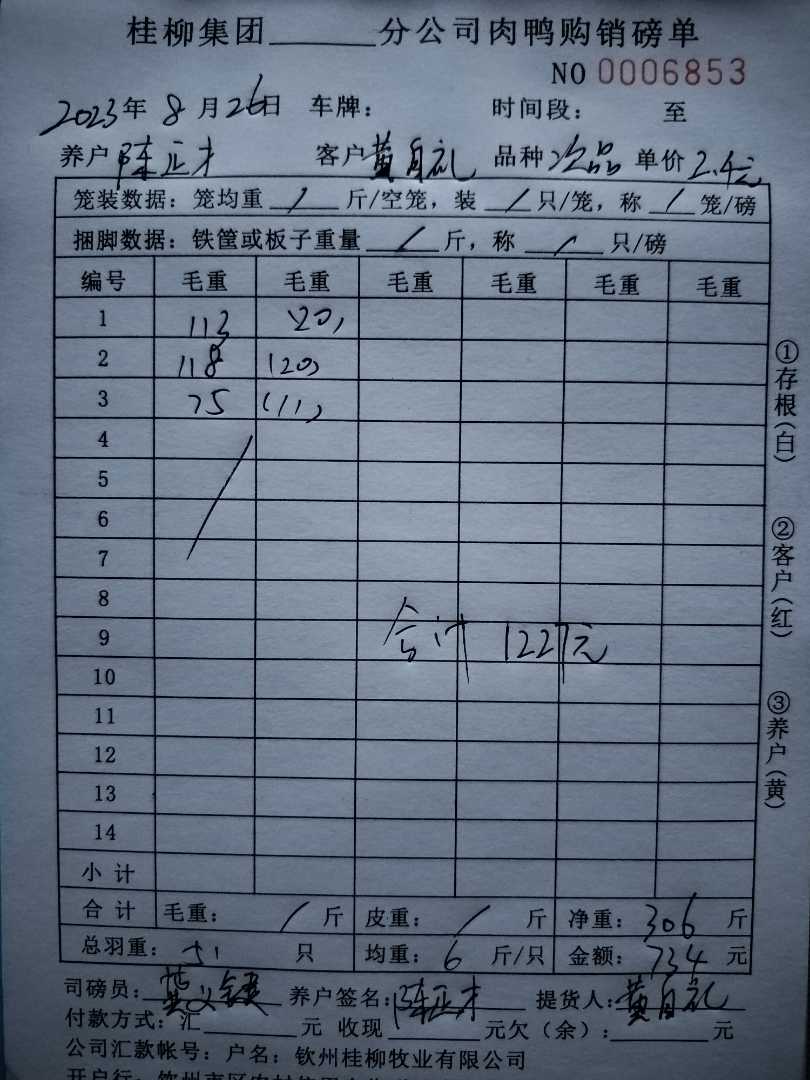 桂柳集团______分公司肉鸭购销磅单
NO 0006853
2023年 8 月 26日 车牌： 时间段： 至
养户 陈正才 客户 黄自礼 品种 次品 单价 2.4元
笼装数据：笼均重 / 斤/空笼，装 / 只/笼，称 / 笼/磅
捆脚数据：铁筐或板子重量 / 斤，称 / 只/磅
编号 毛重 毛重 毛重 毛重 毛重 毛重
1 113 (20)
2 118 (20)
3 75 (11)
4
5
6
7
8
9 合计 1227元
10
11
12
13
14
小计
合计 毛重： / 斤 皮重： / 斤 净重：306 斤
总羽重：51 只 均重：6 斤/只 金额：734 元
司磅员： 养户签名：陈正才 提货人：黄自礼
付款方式：汇______元 收现______元欠（余）：______元
公司汇款帐号：户名：钦州桂柳牧业有限公司
①存根(白)
②客户(红)
③养户(黄)